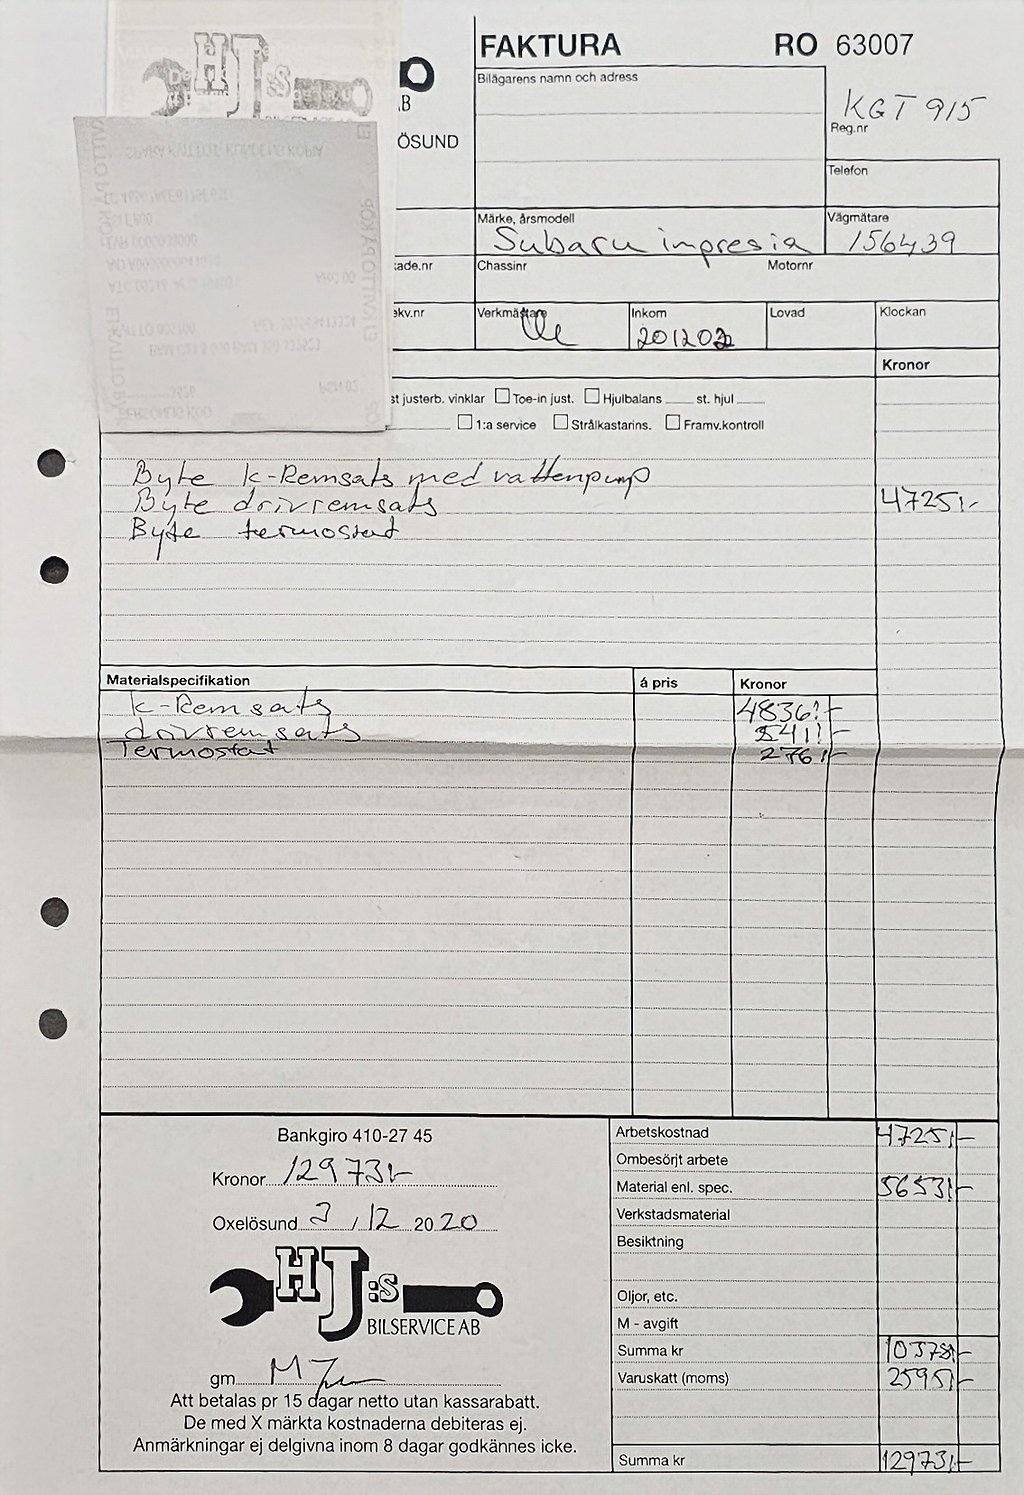 HJ:s
FAKTURA RO 63007
Bilägarens namn och adress
KGT 915
AB
Reg.nr
ÖSUND
Telefon
Märke, årsmodell Vägmätare
Subaru impresia 156439
kade.nr Chassinr Motornr
ekv.nr Verkmästare Inkom Lovad Klockan
201202
Kronor
st justerb. vinklar Toe-in just. Hjulbalans st. hjul
1:a service Strålkastarins. Framv.kontroll
Byte k-Remsats med vattenpump
Byte drivremsats 4725:-
Byte termostat
Materialspecifikation á pris Kronor
k-Remsats 4836:-
drivremsats 541:-
Termostat 276:-
Bankgiro 410-27 45
Kronor 12973:-
Oxelösund 2 / 12 2020
HJ:s
BILSERVICE AB
gm
Att betalas pr 15 dagar netto utan kassarabatt.
De med X märkta kostnaderna debiteras ej.
Anmärkningar ej delgivna inom 8 dagar godkännes icke.
Arbetskostnad 4725:-
Ombesörjt arbete
Material enl. spec. 5653:-
Verkstadsmaterial
Besiktning
Oljor, etc.
M - avgift
Summa kr 10378:-
Varuskatt (moms) 2595:-
Summa kr 12973:-